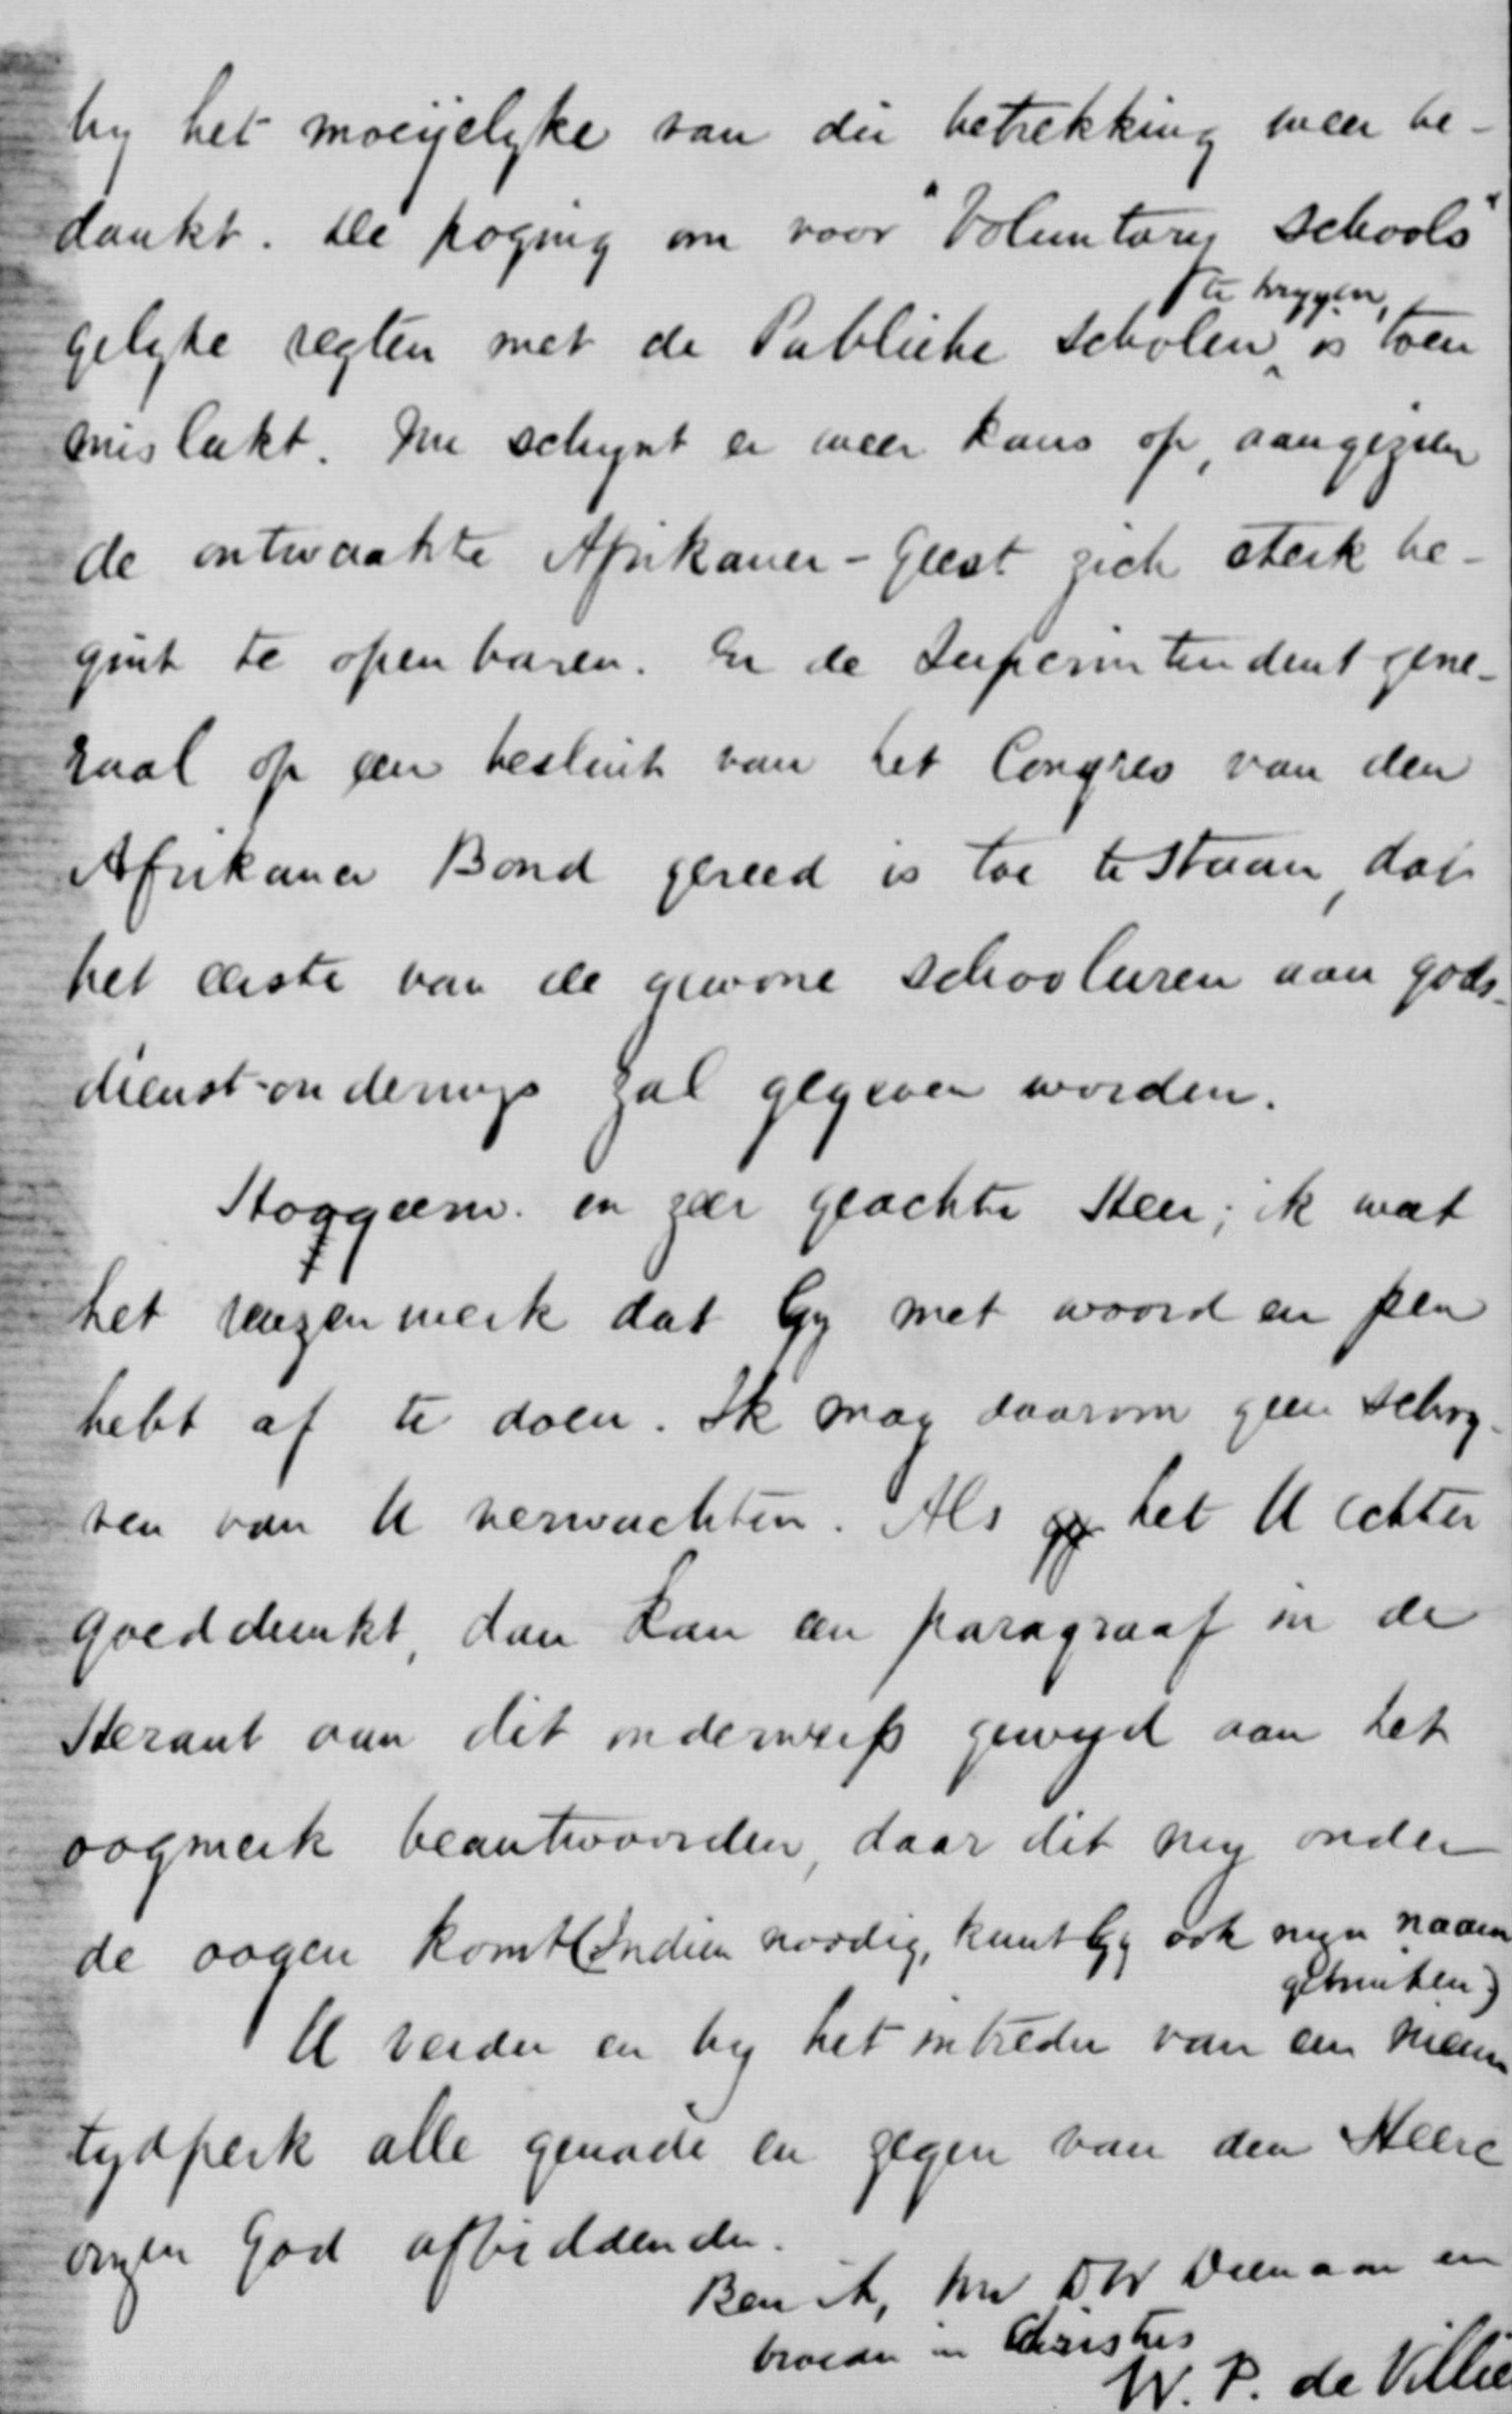 by het moeijelyke van die betrekking weer be-
dankt. De poging om voor "Voluntary Schools"
te krygen,
gelyke regten met de Publieke Scholen is toen
mislukt. Nu schynt er meer kans op, aangezien
de ontwaakte Afrikaner-Geest zich sterk be-
gint te openbaren. En de Superintendent gene-
raal op een besluit van het Congres van den
Afrikaner Bond gereed is toe te staan, dat
het eerste van de gewone schooluren aan gods-
dienst-onderwys zal gegeven worden.
Hooggeern. en zeer geachte Heer; ik weet
het reuzenwerk dat Gy met woord en pen
hebt af te doen. Ik mag daarom geen schry-
ven van U verwachten. Als het U echter
goeddunkt, dan kan een paragraaf in de
Heraut aan dit onderwerp gewyd aan het
oogmerk beantwoorden, daar dit my onder
de oogen komt (Indien noodig, kunt Gy ook myn naam
gebruiken)
U verder en by het intreden van een nieuw
tydperk alle genade en zegen van den Heere
onzen God afbiddende.
Ben ik, Uw DW Dienaar en
broeder in Christus
W. P. de Villie